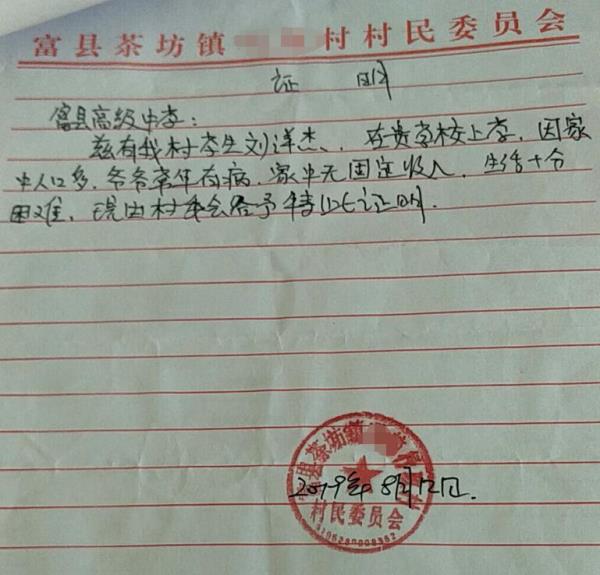 富县茶坊镇 村村民委员会
证 明
富县高级中学:
兹有我村学生刘洋杰、在贵学校上学,因家
中人口多,爷爷常年有病,家中无固定收入,生活十分
困难,现由村委会给予特此证明.
县茶坊镇
2019年8月12日.
村民委员会